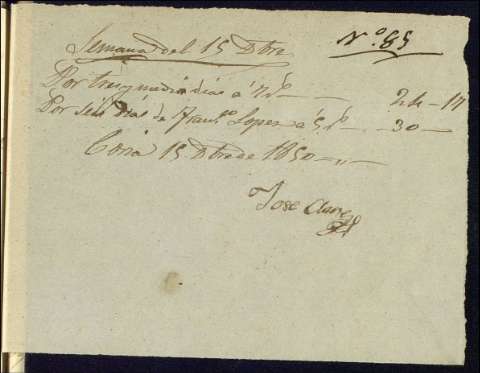 Nº 85
Semana del 15 Dbre
Por tres y medio dias á 7 r.s — 24 — 17
Por seis dias de Franc.co Lopez á 5 r.s — 30 —
Coria 15 Dbre de 1850
Jose